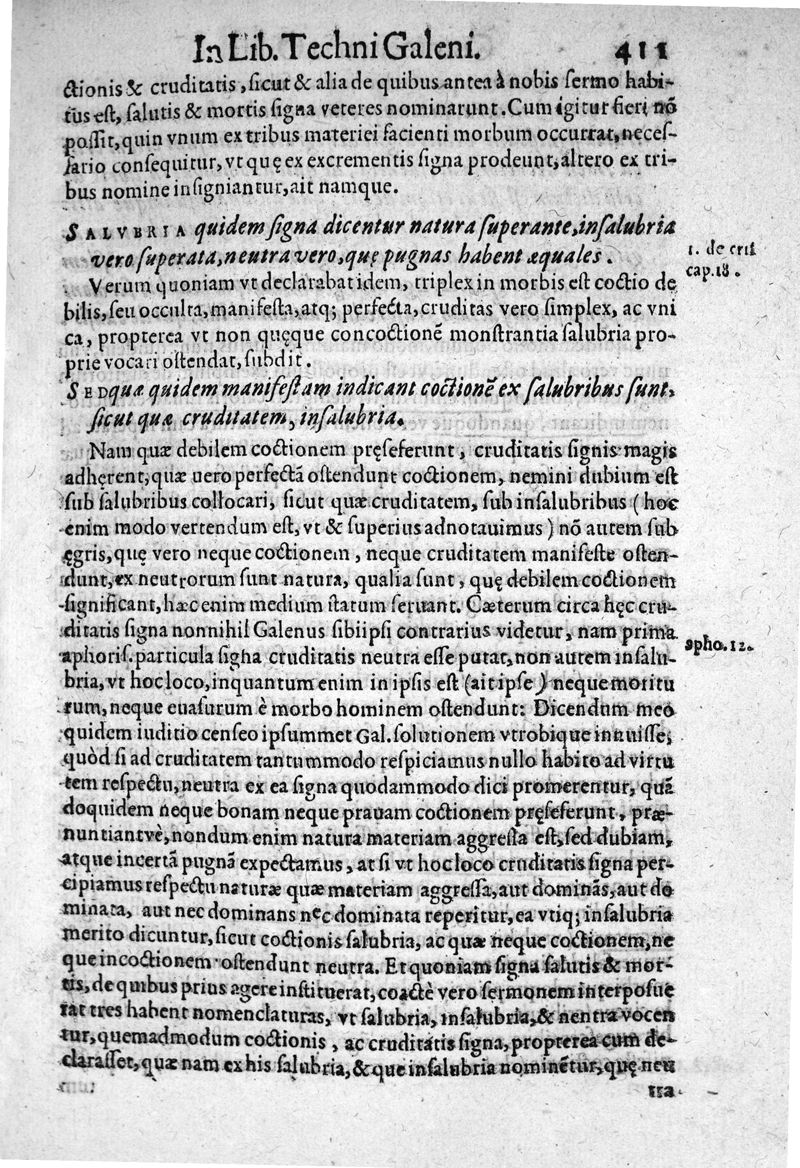 In Lib. Techni Galeni. 411
ctionis & cruditatis, sicut & alia de quibus antea à nobis sermo habi-
tus est, salutis & mortis signa veteres nominarunt. Cum igitur fieri nõ
possit, quin vnum ex tribus materiei facienti morbum occurrat, neces-
sario consequitur, vt quę ex excrementis signa prodeunt, altero ex tri-
bus nomine insigniantur, ait namque.
SALVBRIA quidem signa dicentur natura superante, insalubria
vero superata, neutra vero, quę pugnas habent æquales.
1. de crisi
cap. 18.
Verum quoniam vt declarabat idem, triplex in morbis est coctio de
bilis, seu occulta, manifesta, atq; perfecta, cruditas vero simplex, ac vni
ca, propterea vt non quęque concoctionẽ monstrantia salubria pro-
prie vocari ostendat, subdit.
SED quæ quidem manifestam indicant coctionẽ ex salubribus sunt,
sicut quæ cruditatem, insalubria.
Nam quæ debilem coctionem pręseferunt, cruditatis signis magis
adhęrent, quæ uero perfectã ostendunt coctionem, nemini dubium est
sub salubribus collocari, sicut quæ cruditatem, sub insalubribus (hoc
enim modo vertendum est, vt & superius adnotauimus) nõ autem sub
ęgris, quę vero neque coctionem, neque cruditatem manifeste osten-
dunt, ex neutrorum sunt natura, qualia sunt, quę debilem coctionem
significant, hæc enim medium statum seruant. Cæterum circa hęc cru-
ditatis signa nonnihil Galenus sibiipsi contrarius videtur, nam prima
apho. 12.
aphoris. particula signa cruditatis neutra esse putat, non autem insalu-
bria, vt hoc loco, inquantum enim in ipsis est (ait ipse) neque moritu
rum, neque euasurum è morbo hominem ostendunt: Dicendum meo
quidem iuditio censeo ipsummet Gal. solutionem vtrobique innuisse,
quòd si ad cruditatem tantummodo respiciamus nullo habito ad virtu
tem respectu, neutra ex ea signa quodammodo dici promerentur, quã
doquidem neque bonam neque prauam coctionem pręseferunt, præ-
nuntiantvè, nondum enim natura materiam aggressa est, sed dubiam,
atque incertã pugnã expectamus, at si vt hoc loco cruditatis signa per-
cipiamus respectu naturæ quæ materiam aggressa, aut dominãs, aut do
minata, aut nec dominans nec dominata reperitur, ea vtiq; insalubria
merito dicuntur, sicut coctionis salubria, ac quæ neque coctionem, ne
que incoctionem ostendunt neutra. Et quoniam signa salutis & mor-
tis, de quibus prius agere instituerat, coactè vero sermonem interposue
rat tres habent nomenclaturas, vt salubria, insalubria, & neutra vocen
tur, quemadmodum coctionis, ac cruditatis signa, propterea cum de-
clarasset, quæ nam ex his salubria, & que insalubria nominẽtur, quę neu